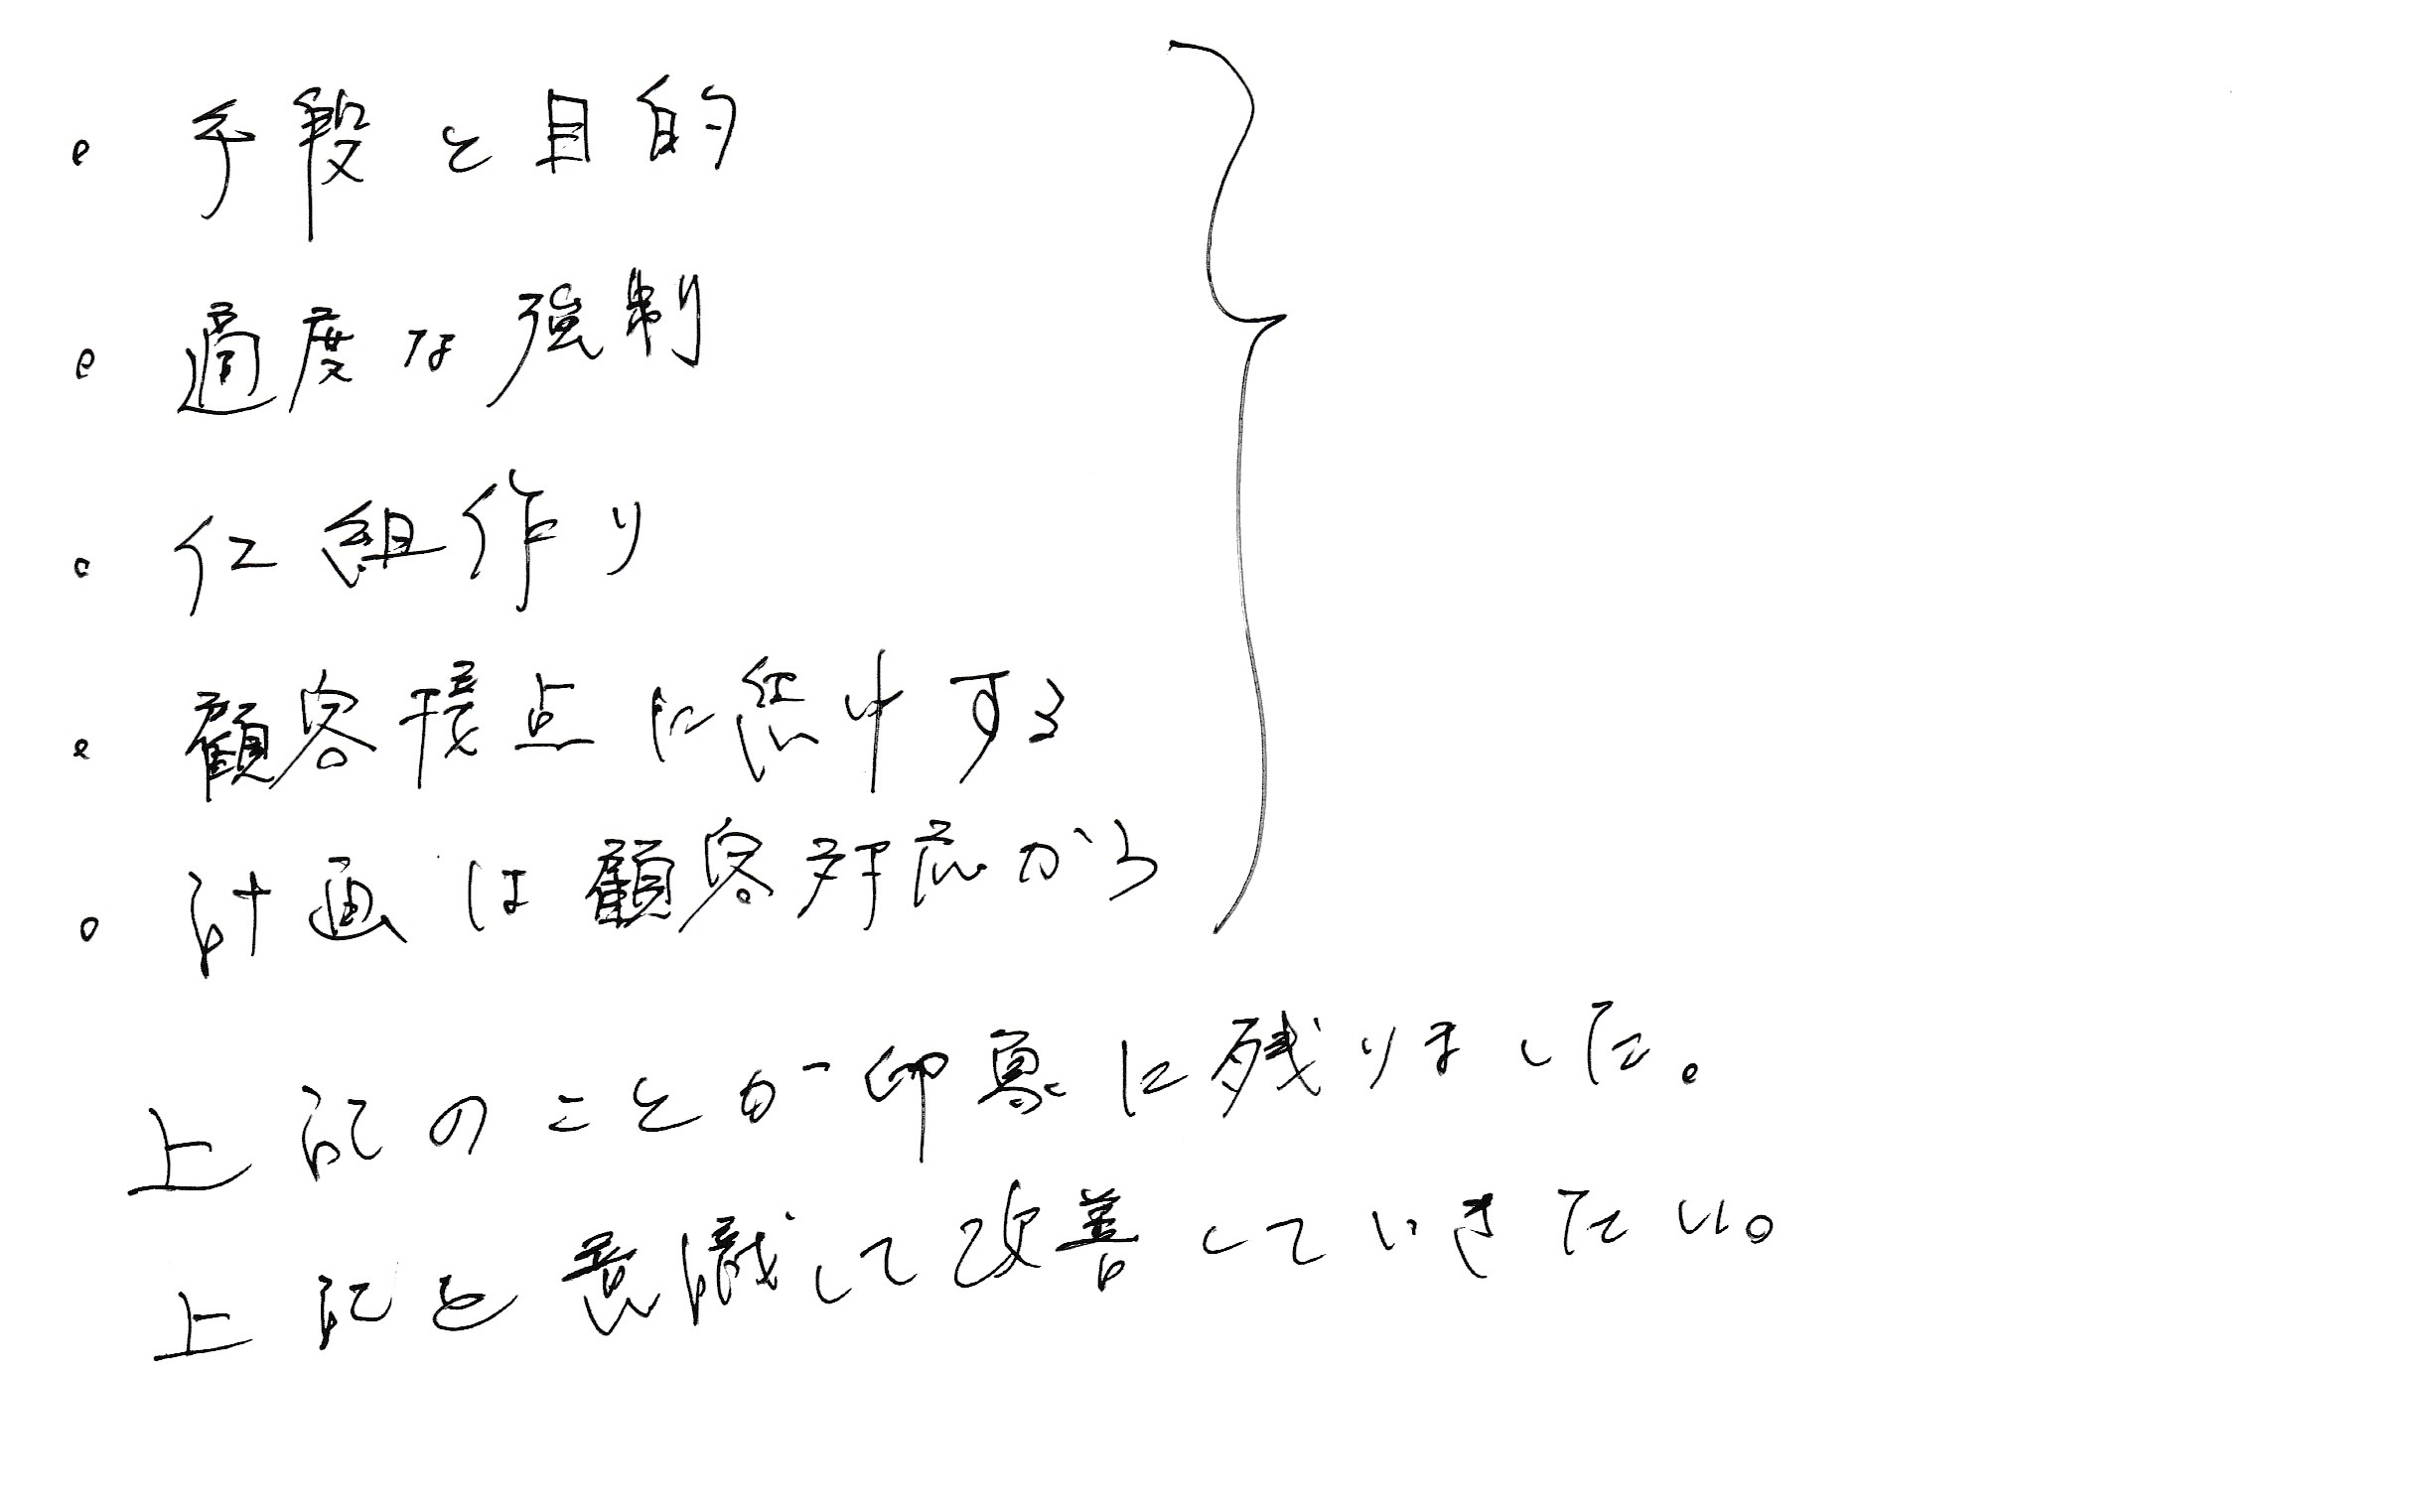 • 手段と目的
• 適度な強制
• 仕組作り
• 顧客接点に集中する
• 計画は顧客対応から
上記のことが印象に残りました。
上記を意識して改善していきたい。